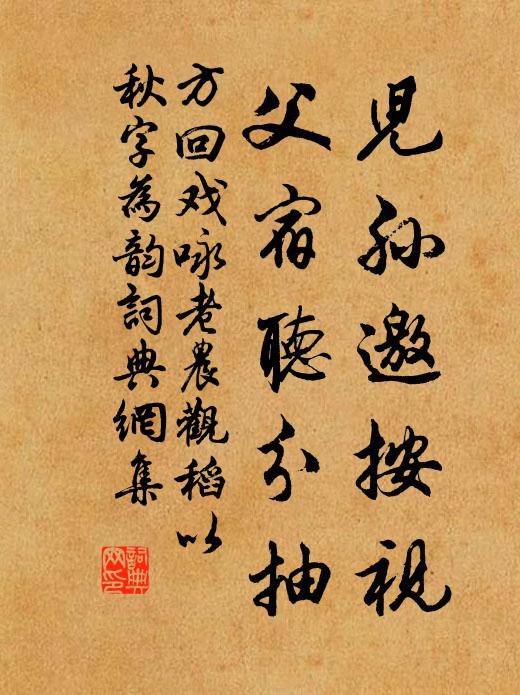 兒孫邀按視
父宿聽分抽
方回戏咏老農觀稻以
秋字為韵詞典網集
詞典
网印